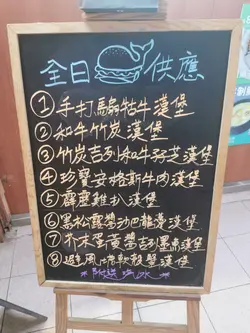 全日供應
①手打騸牯牛漢堡
②和牛竹炭漢堡
③竹炭吉列和牛孖芝漢堡
④珍寶安格斯牛肉漢堡
⑤霹靂雞扒漢堡
⑥黑松露醬功巴龍漢堡
⑦芥末蛋黃醬吉列墨魚漢堡
⑧避風塘軟殼蟹漢堡
*附送